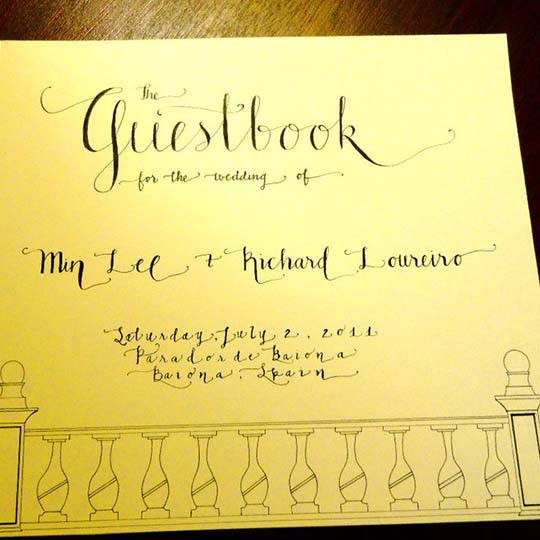 The
Guestbook
for the wedding of
Min Lee + Richard Loureiro
Saturday, July 2, 2011
Parador de Baiona
Baiona, Spain